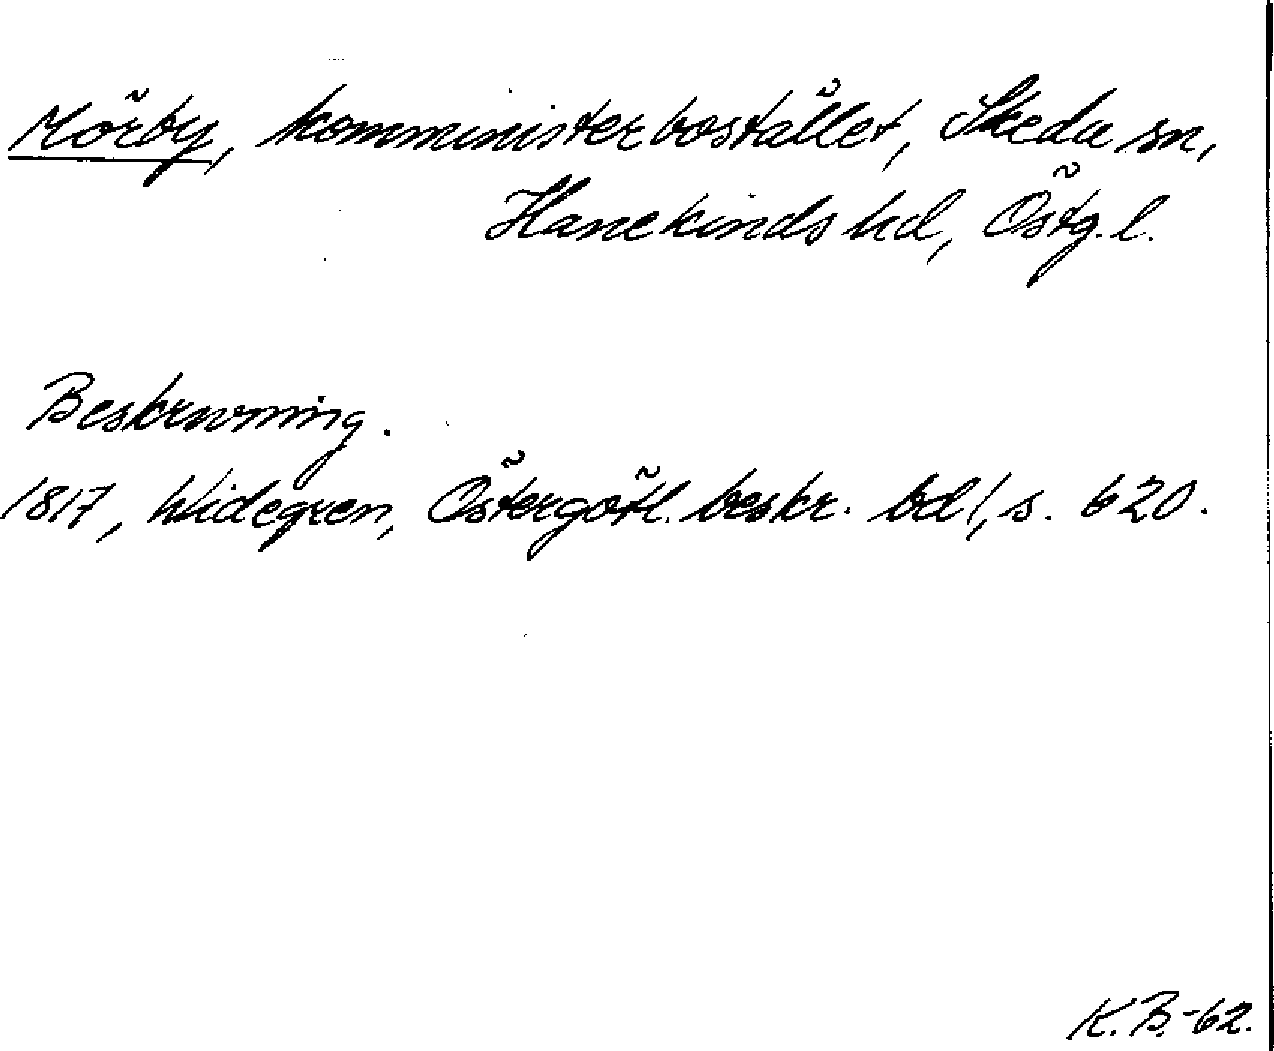 Mörby, komministerbostället, Skeda sn,
Hanekinds hd, Östg. l.
Beskrivning.
1817, Widegren, Östergötl. beskr. bd 1, s. 620.
K. B. -62.